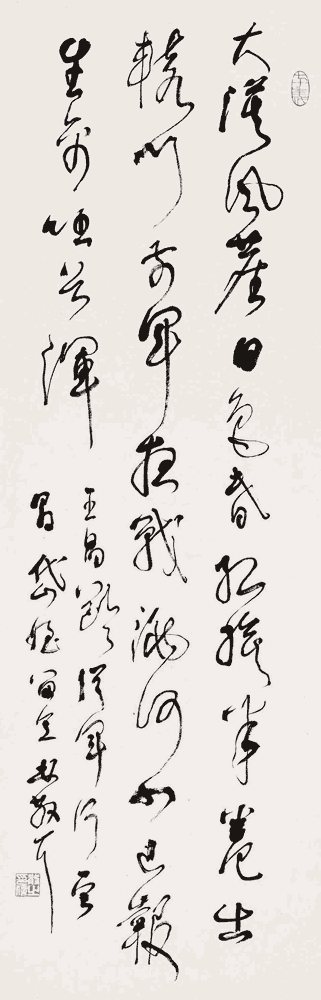 大漠風塵日色昏紅旗半卷出
轅門前軍夜戰洮河北已報
生擒吐谷渾
王昌齡從軍行
岱 留念 林散耳